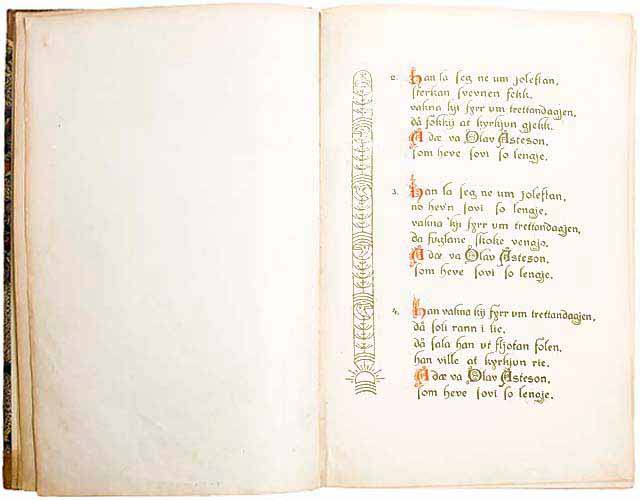 2. Han la seg ne um joleftan,
sterkan svevnen fekk.
vakna kji fyrr um trettandagjen,
då fokkji at kyrkjun gjekk.
Å dæ va Olav Åsteson,
som heve sovi so lengje.
3. Han la seg ne um joleftan,
no hev'n sovi so lengje,
vakna kji fyrr um trettandagjen,
da fuglane skoke vengjo.
Å dæ va Olav Åsteson,
som heve sovi so lengje.
4. Han vakna kji fyrr um trettandagjen,
då soli rann i lie.
då sala han ut fljotan folen,
han ville at kyrkjun rie.
Å dæ va Olav Åsteson,
som heve sovi so lengje.